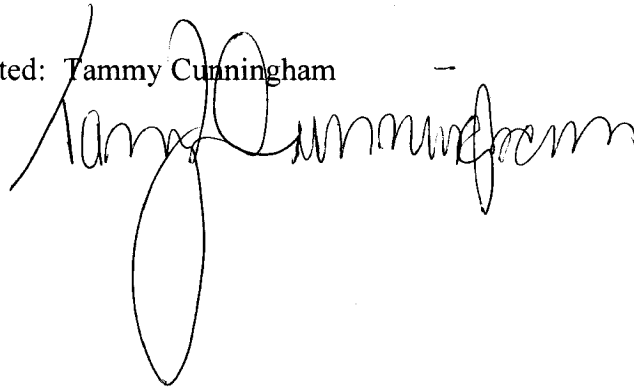 ted: Tammy Cunningham
Tammy Cunningham